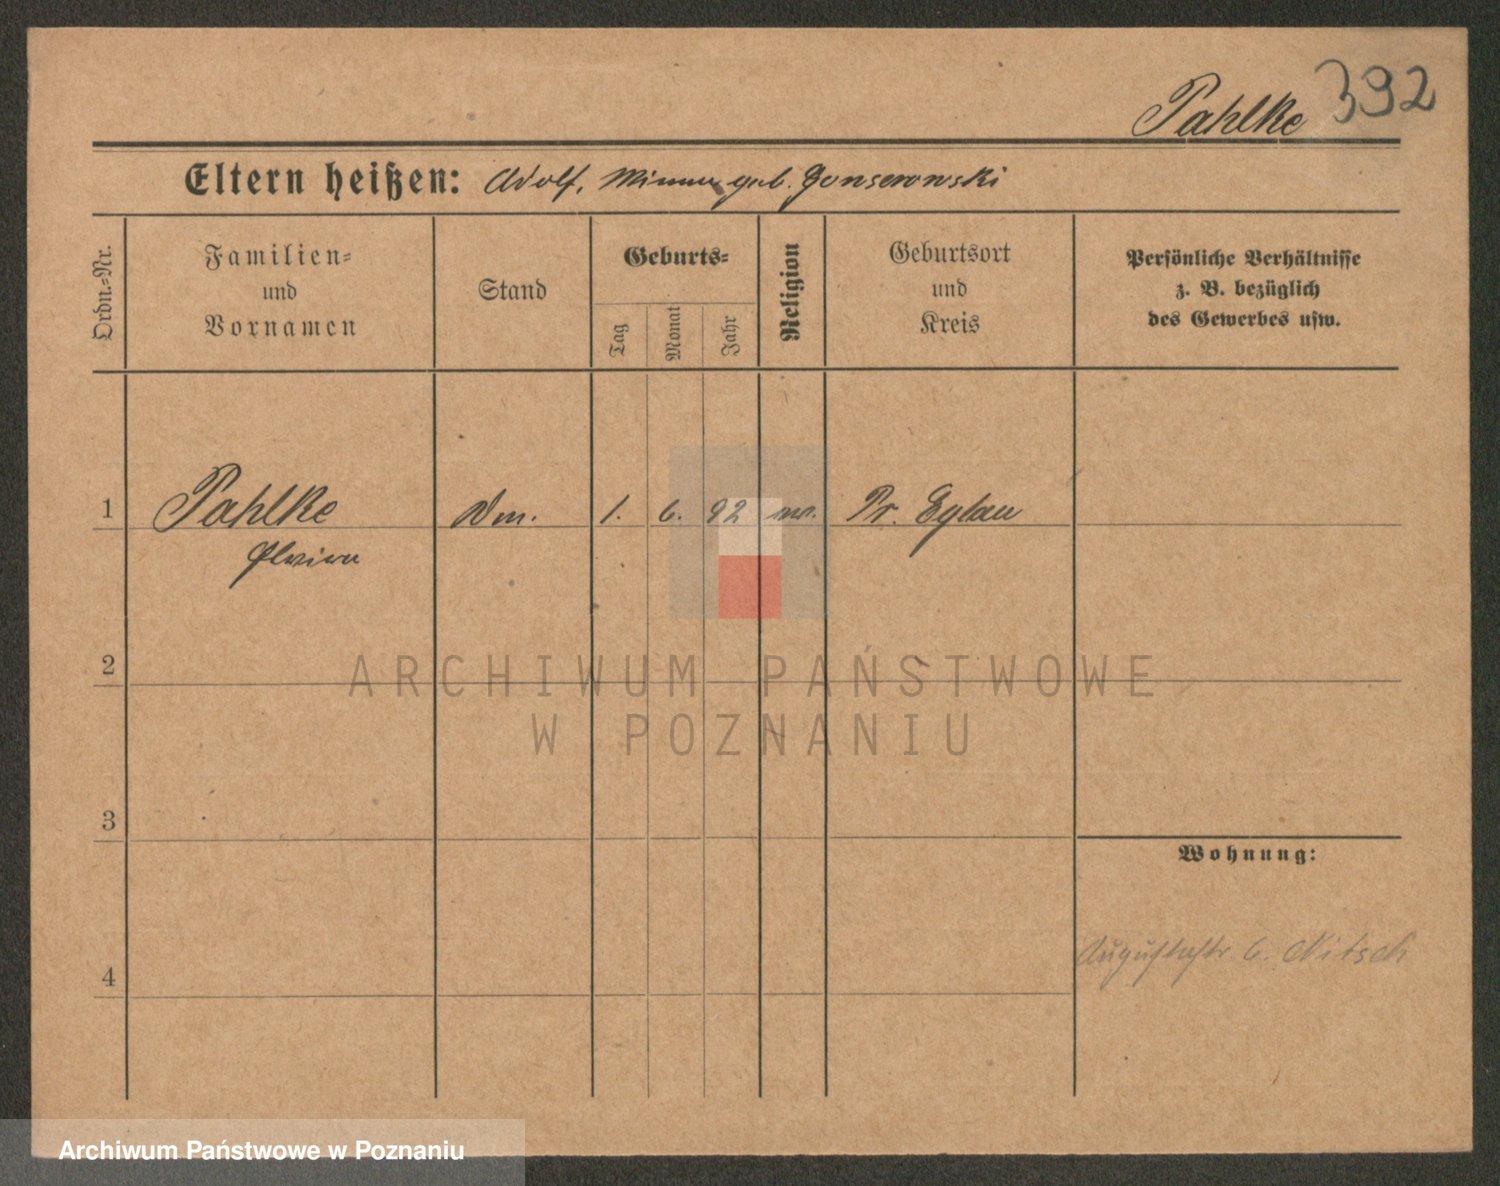 Pahlke 392
Eltern heißen: Adolf, Minna geb. Gonserowski
Ordn.-Nr.
Familien-
und
Vornamen
Stand
Geburts-
Tag
Monat
Jahr
Religion
Geburtsort
und
Kreis
Persönliche Verhältnisse
z. B. bezüglich
des Gewerbes usw.
1 Pahlke 1. 6. 92 ev. Pr. Eylau
Elvira
2
ARCHIWUM PAŃSTWOWE
W POZNANIU
3
Wohnung:
Augustastr. 6. Nitsch
4
Archiwum Państwowe w Poznaniu